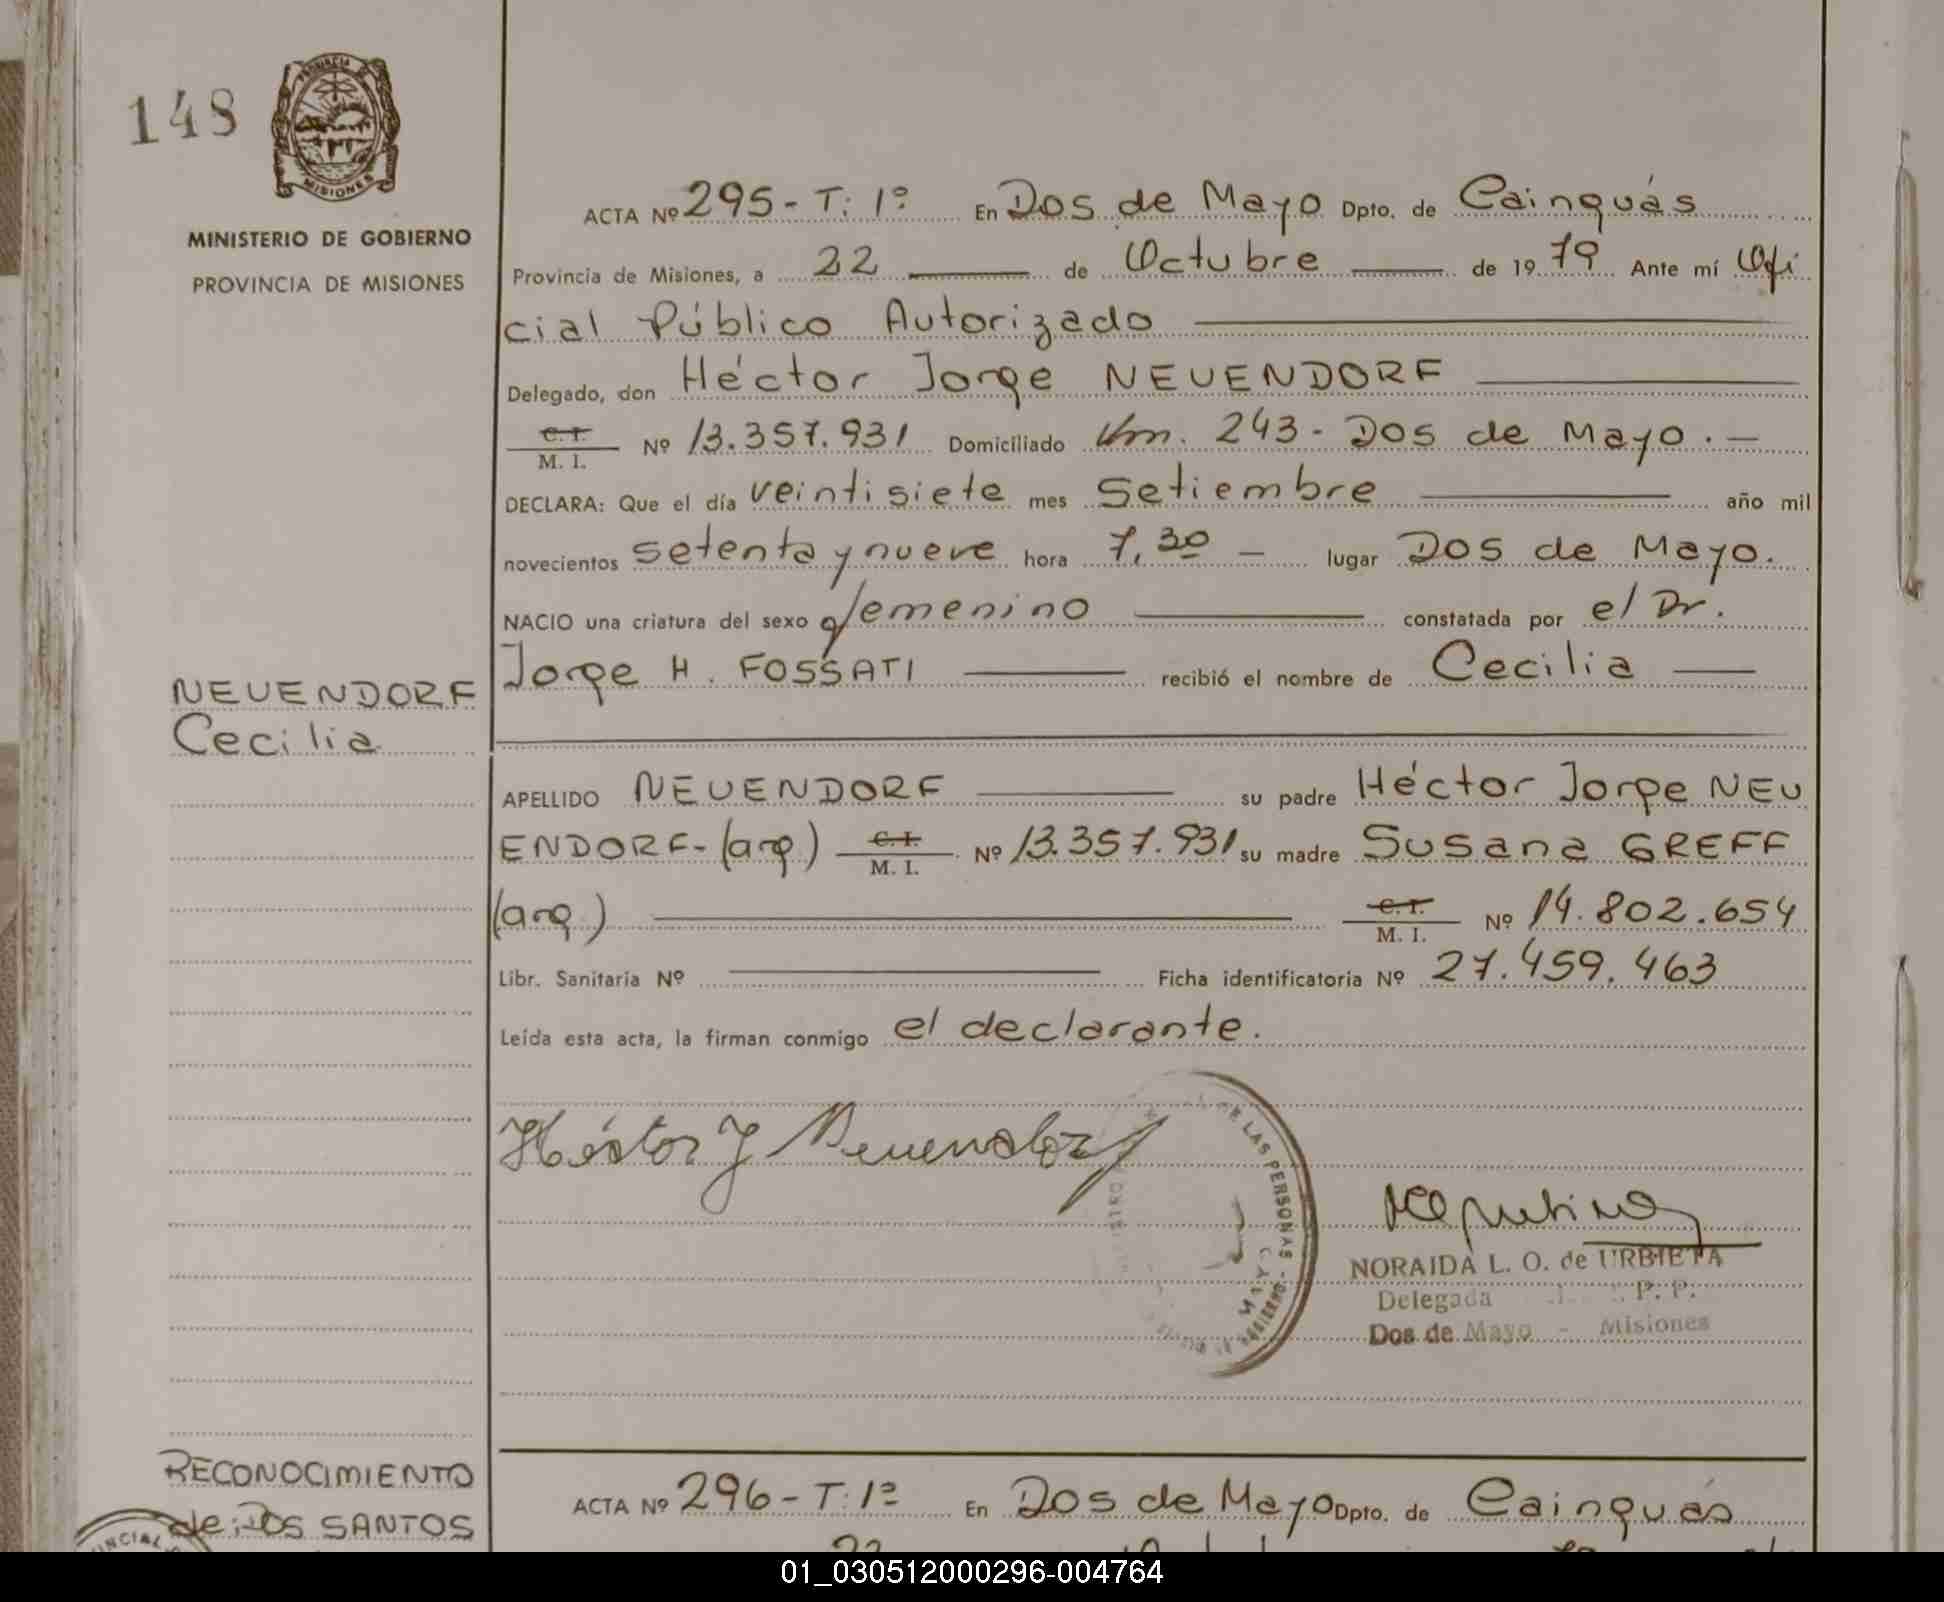 148
PROVINCIA DE
MISIONES
MINISTERIO DE GOBIERNO
PROVINCIA DE MISIONES
ACTA Nº 295 - T: 1º En Dos de Mayo Dpto. de Cainguás
Provincia de Misiones, a 22 de Octubre de 1979 Ante mí Ofi
cial Público Autorizado
Delegado, don Héctor Jorge NEUENDORF
C. I.
M. I. Nº 13.357.931 Domiciliado Km. 243 - Dos de Mayo. -
DECLARA: Que el día veintisiete mes Setiembre año mil
novecientos setenta y nueve hora 7,30 - lugar Dos de Mayo.
NACIO una criatura del sexo femenino constatada por el Dr.
Jorge H. FOSSATI recibió el nombre de Cecilia
NEUENDORF
Cecilia
APELLIDO NEUENDORF su padre Héctor Jorge NEU
ENDORF - (arg) C. I.
M. I. Nº 13.357.931 su madre Susana GREFF
(arg) C. I.
M. I. Nº 14.802.654
Libr. Sanitaria Nº Ficha identificatoria Nº 27.459.463
Leída esta acta, la firman conmigo el declarante.
Héctor J Neuendorf
DE LAS PERSONAS -
NORAIDA L. O. de URBIETA
Delegada P. P.
Dos de Mayo - Misiones
RECONOCIMIENTO
de: DOS SANTOS
ACTA Nº 296 - T: 1º En Dos de Mayo Dpto. de Cainguás
01_030512000296-004764